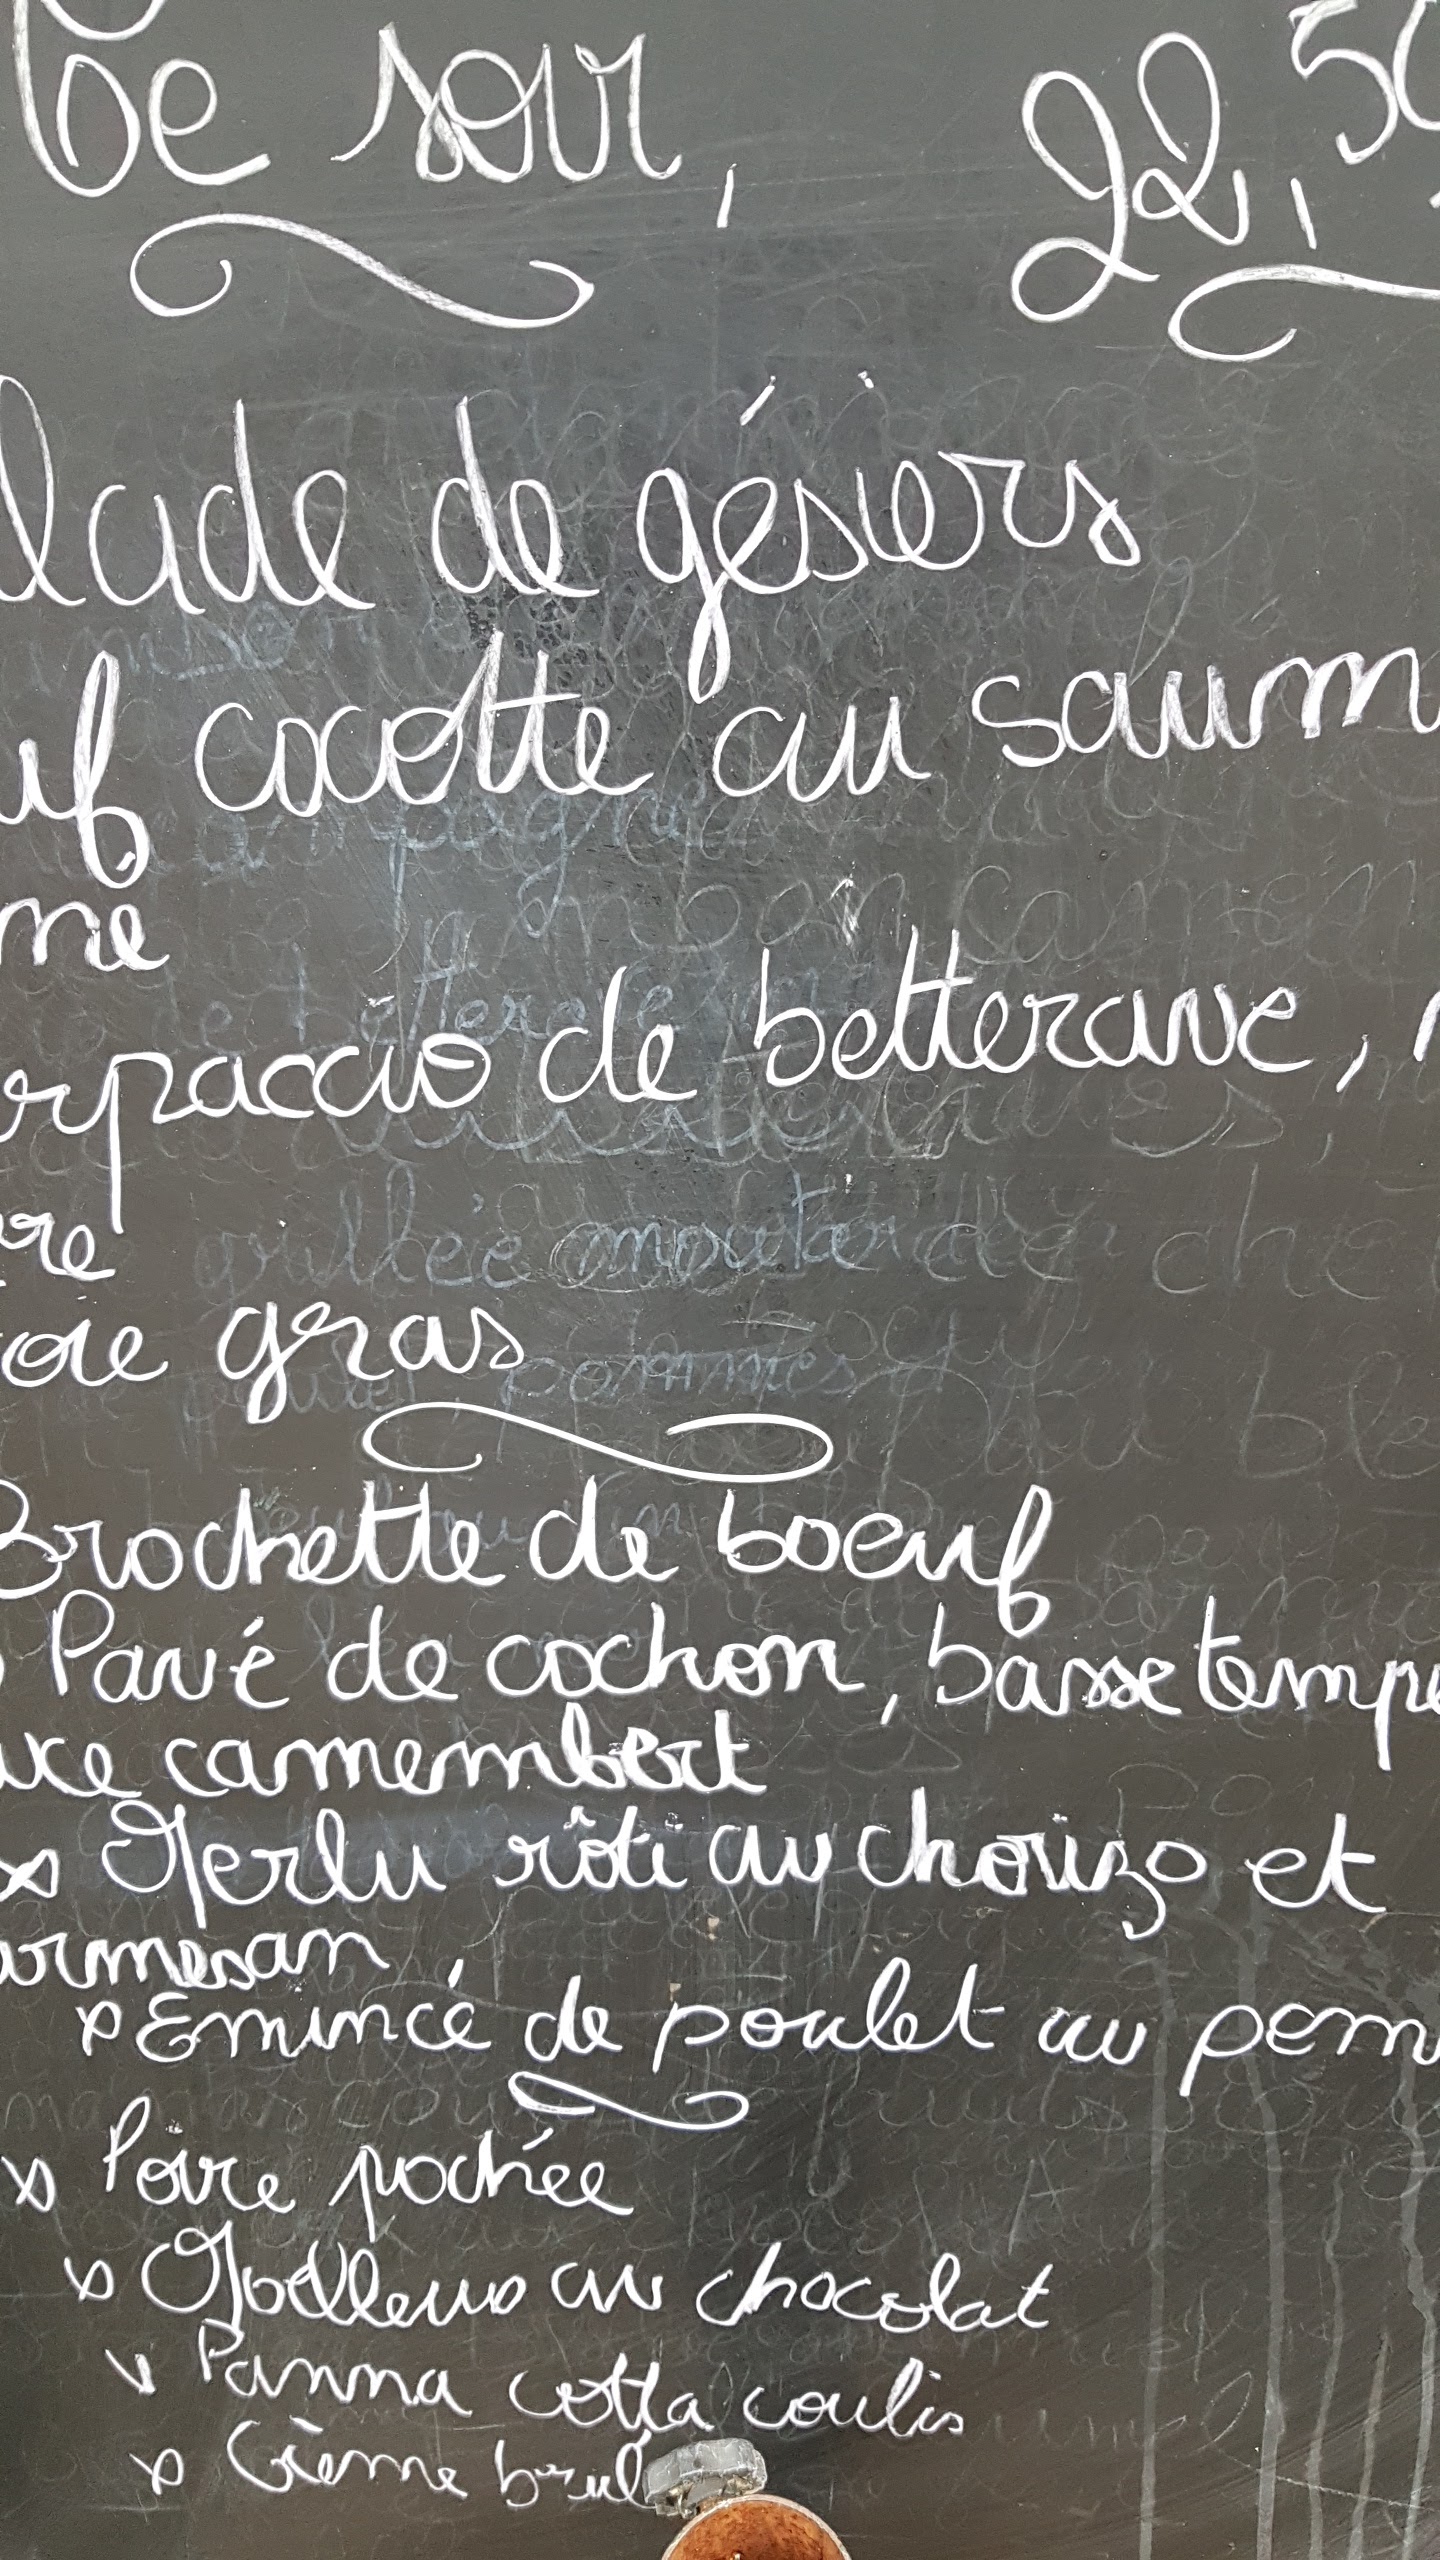 Ce soir, 22,50
lade de gésiers
uf cocotte au saum
me
arpaccio de betterave,
re
oie gras
Brochette de boeuf
Pavé de cochon, basse tempé
uce camembert
x Merlu rôti au chorizo et
armesan
x Emincé de poulet au pom
x Poire pochée
x Moelleux au chocolat
v Panna cotta coulis
x Crème brul